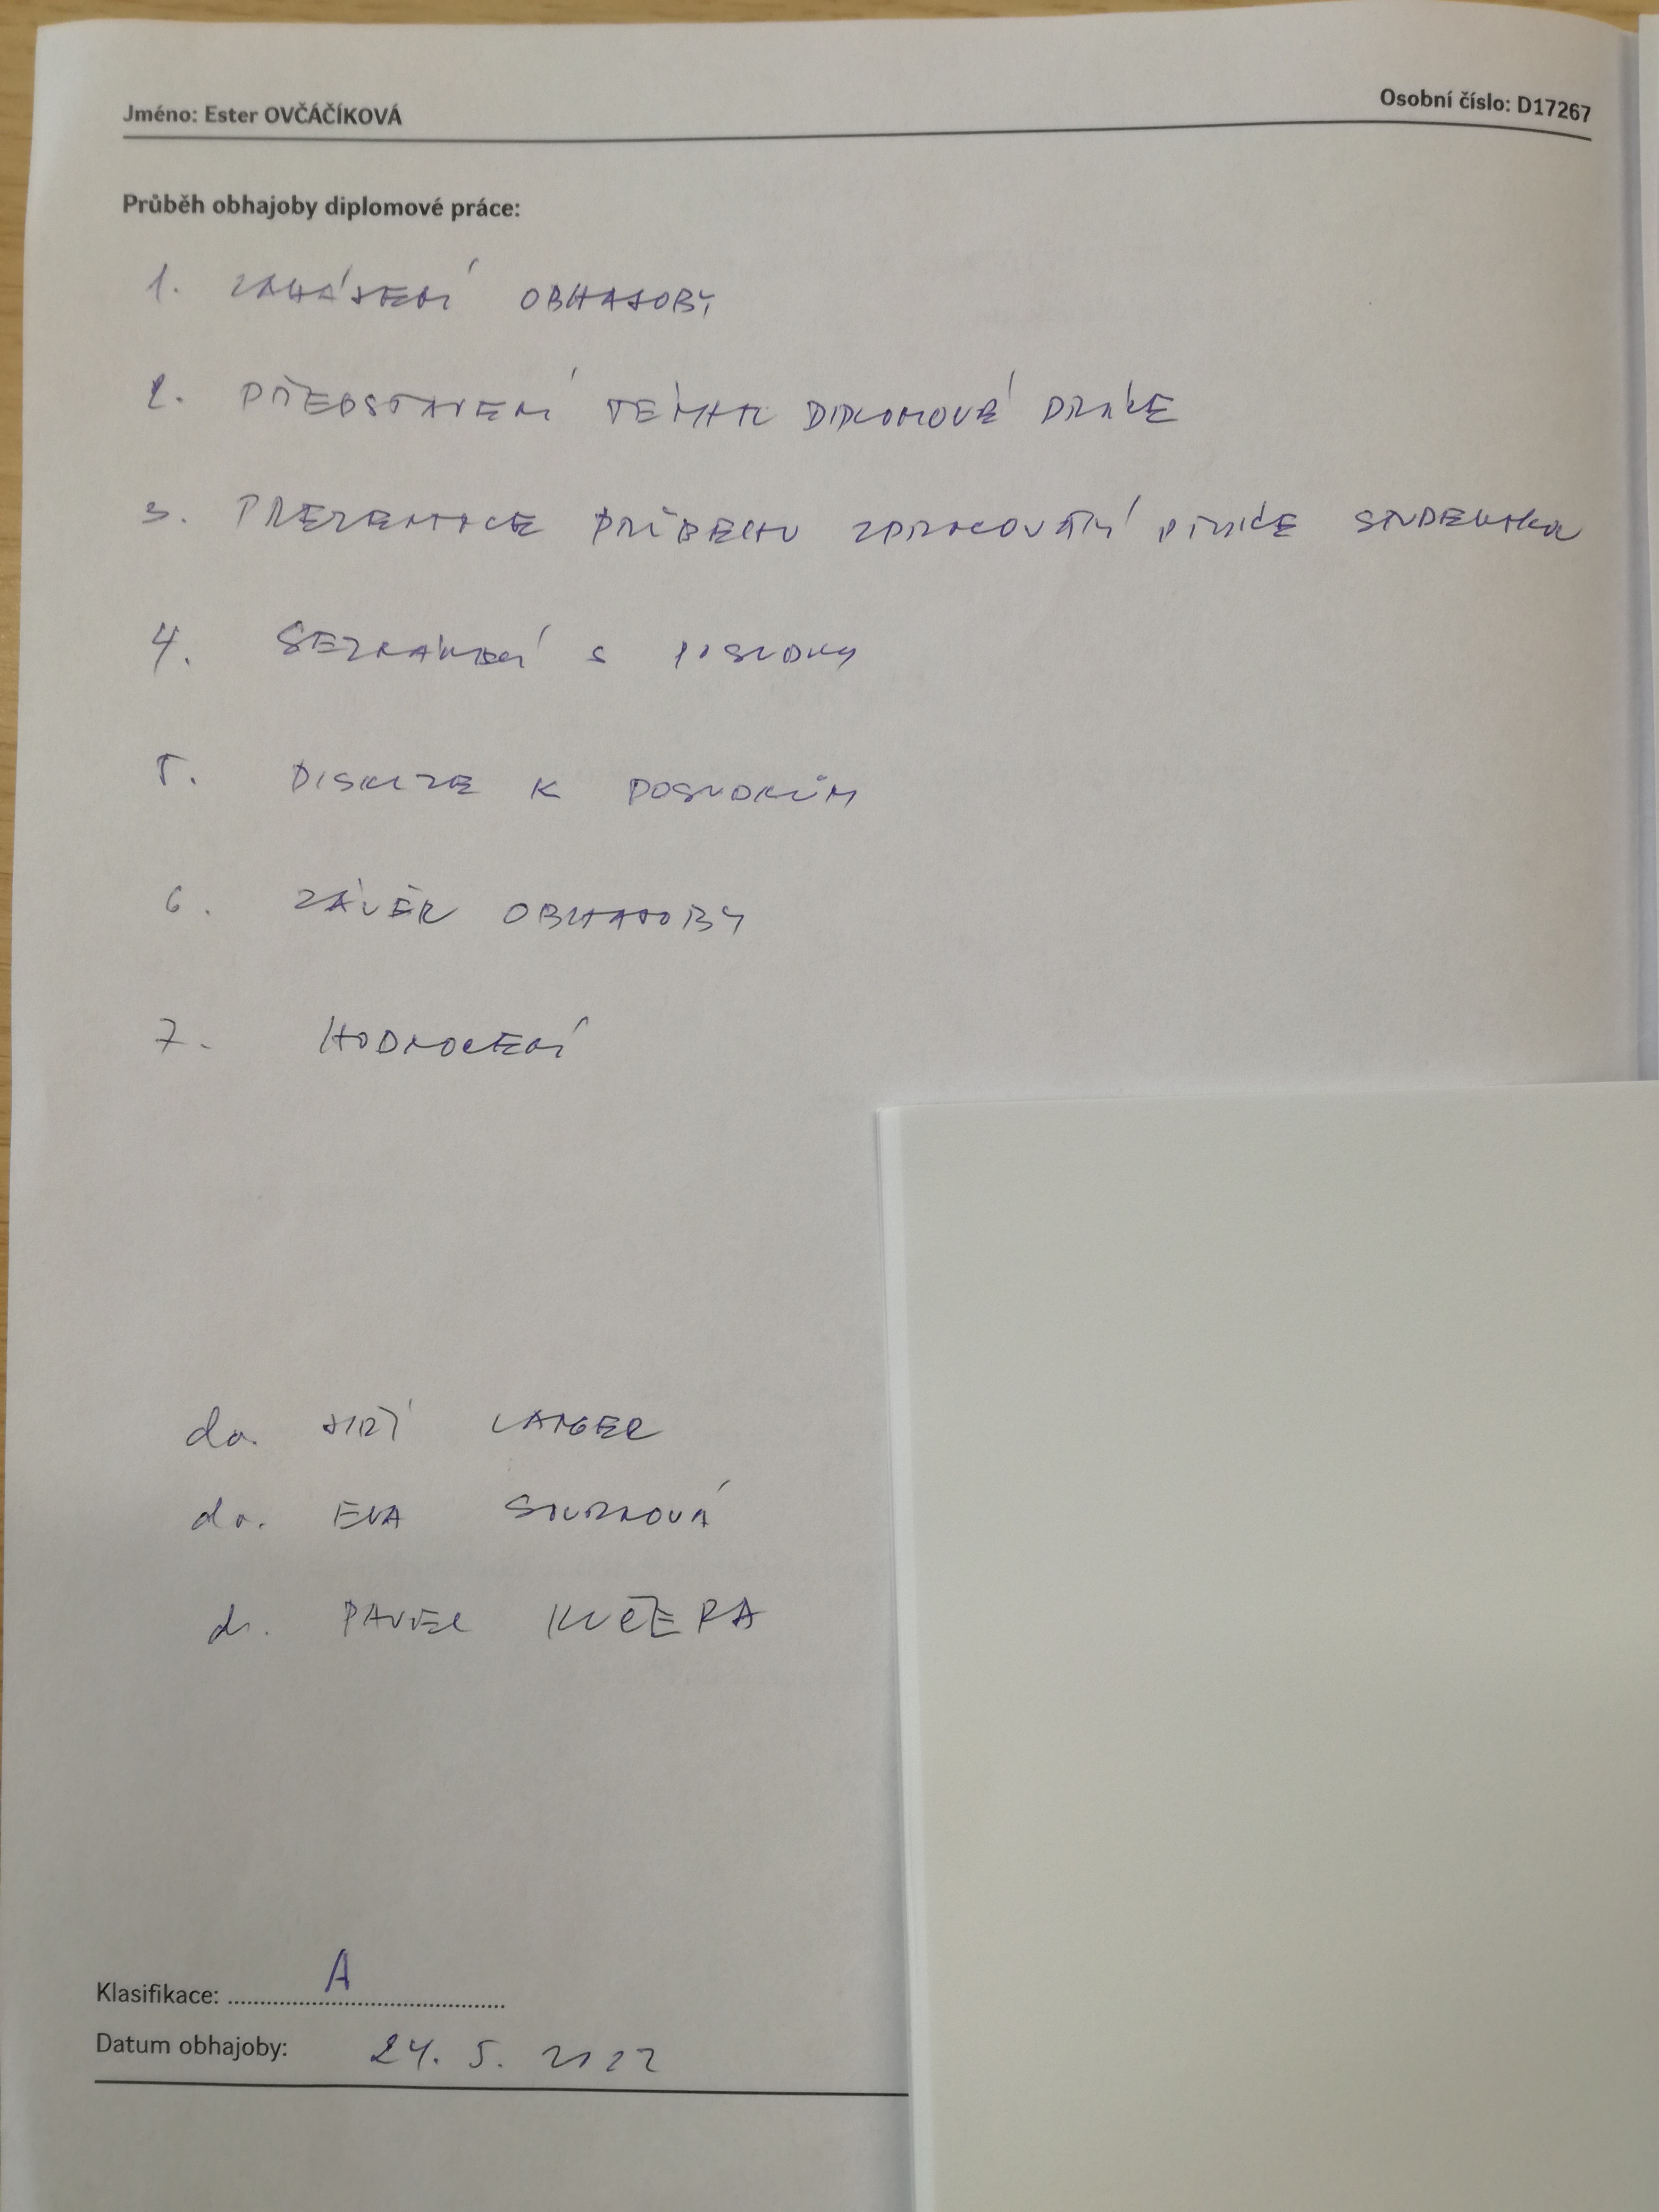 Jméno: Ester OVČÁČÍKOVÁ
Osobní číslo: D17267
Průběh obhajoby diplomové práce:
1. ZAHÁJENÍ OBHAJOBY
2. PŘEDSTAVENÍ TÉMATU DIPLOMOVÉ PRÁCE
3. PREZENTACE PRŮBĚHU ZPRACOVÁNÍ PRÁCE STUDENTKOU
4. SEZNÁMENÍ S POSUDKY
5. DISKUZE K POSUDKŮM
6. ZÁVĚR OBHAJOBY
7. HODNOCENÍ
dr. JIŘÍ LANGER
dr. EVA SOUČKOVÁ
dr. PAVEL KUČERA
Klasifikace: A
Datum obhajoby: 24. 5. 2022